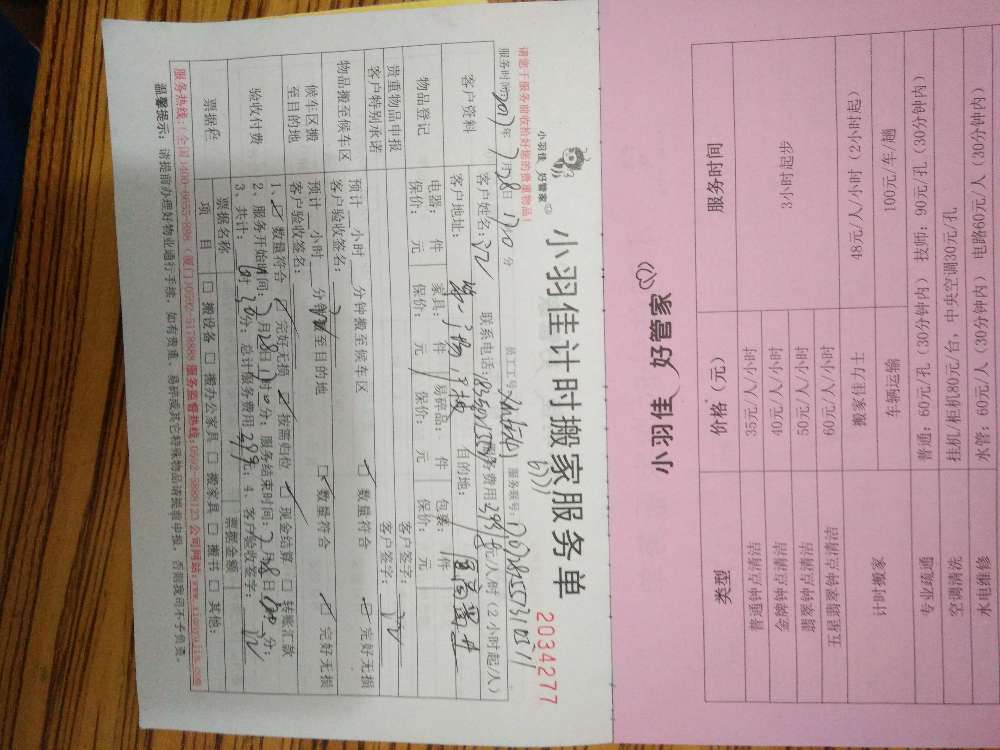 小羽佳 好管家
小羽佳计时搬家服务单
2034277
请您于服务前收拾好您的贵重物品!
服务时间:2017年7月28日 分
员工工号:
服务账号:
客户资料
客户姓名:
联系电话:
服务费用 元/人/时(2小时起/人)
客户地址:
目的地:
物品登记
电器: 件 家具: 件 易碎品: 件 包裹: 件
保价: 元 保价: 元 保价: 元 保价: 元
贵重物品申报
客户签字:
客户特别承诺
客户签字:
物品搬至候车区
预计 小时 分钟搬至候车区 ☑数量符合 ☑完好无损
客户验收签名:
候车区搬至目的地
预计 小时 分钟 至目的地 ☑数量符合 ☑完好无损
客户验收签名:
验收付费
1、☑数量符合 ☑完好无损 ☑按需归位 ☑现金结算 □转账汇款
2、服务开始时间:7月28日 分;服务结束时间:7月28日 分;
3、共计: 时30分;总计服务费用 元;4、客户验收签字:
票据栏
票据名称
票据金额
项 目
□搬设备 □搬办公家具 □搬家具 □搬书 □其他:
服务热线:(全国)400-6655-888 (厦门)0592-5178888 服务监督热线:0592-5888123 公司网站:www.xiaoyujia.com
温馨提示: 请提前办理好物业通行手续,如有贵重、易碎或其它特殊物品请提前申报,否则我司不予负责。
小羽佳 好管家
类型 价格(元) 服务时间
普通钟点清洁 35元/人/小时 3小时起步
金牌钟点清洁 40元/人/小时
翡翠钟点清洁 50元/人/小时
五星翡翠钟点清洁 60元/人/小时
计时搬家 搬家佳力士 48元/人/小时(2小时起)
车辆运输 100元/车/趟
专业疏通 普通:60元/孔(30分钟内) 技师:90元/孔(30分钟内)
空调清洗 挂机/柜机80元/台,中央空调30元/孔
水电维修 水管:60元/人(30分钟内) 电路60元/人(30分钟内)